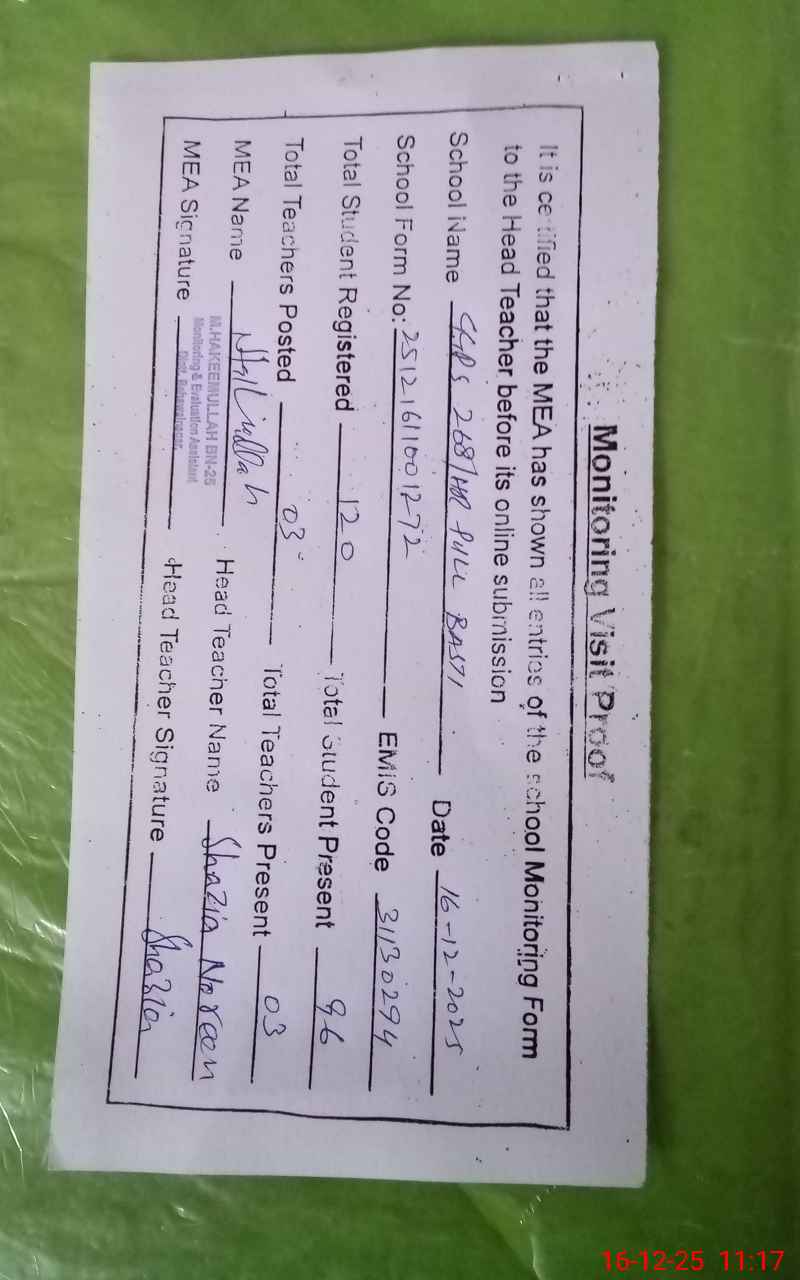 Monitoring Visit Proof
It is certified that the MEA has shown all entries of the school Monitoring Form
to the Head Teacher before its online submission
School Name GGPS 268/HR FULL BASTI Date 16-12-2025
School Form No: 25121611001272 EMIS Code 31130294
Total Student Registered 120 Total Student Present 96
Total Teachers Posted 03 Total Teachers Present 03
MEA Name Head Teacher Name Shazia Noreen
M.HAKEEMULLAH BN-25
Monitoring & Evaluation Assistant
Distt. Bahawalnagar
MEA Signature Head Teacher Signature Shazia
16-12-25 11:17